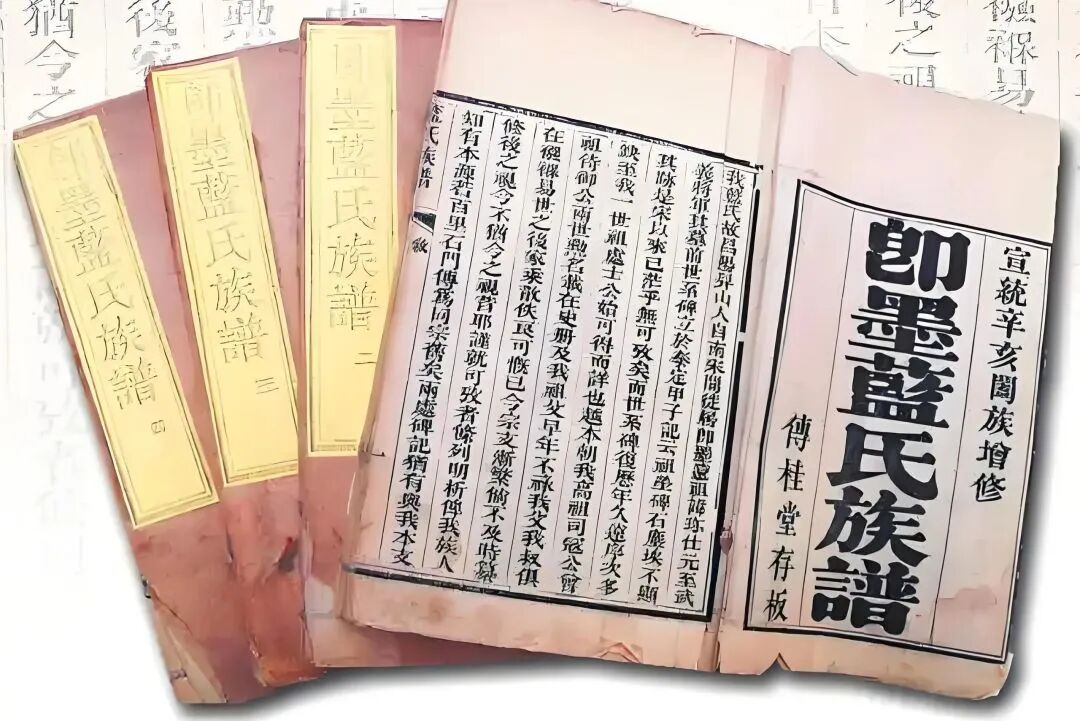 宣統辛亥闔族增修
卽墨藍氏族譜
傳桂堂存板
我藍氏故昌陽昇山人自南宋間徙居卽墨遠祖諱珎仕元至武
義將軍其墓前世系碑立於泰定甲子記云祖塋碑石塵埃不顯
其跡是宋以來已茫乎無可攷矣而世系碑復歷年久遠序次多
缺至我一世祖處士公始可得而詳也逮本朝我高祖司冦公曾
祖侍御公兩世勳名載在史册及我祖父早年不祿我父我叔俱
在襁褓易世之後家乘散佚良可慨已今宗支漸繁倘不及時纂
修後之視今不猶今之視昔耶謹就可攷者條列明析俾我族人
知有本源若百里石門傳爲同宗舊矣兩處碑記猶有與我本支
藍氏族譜
敘
卽墨藍氏族譜 二
卽墨藍氏族譜 三
卽墨藍氏族譜 四
猶今之